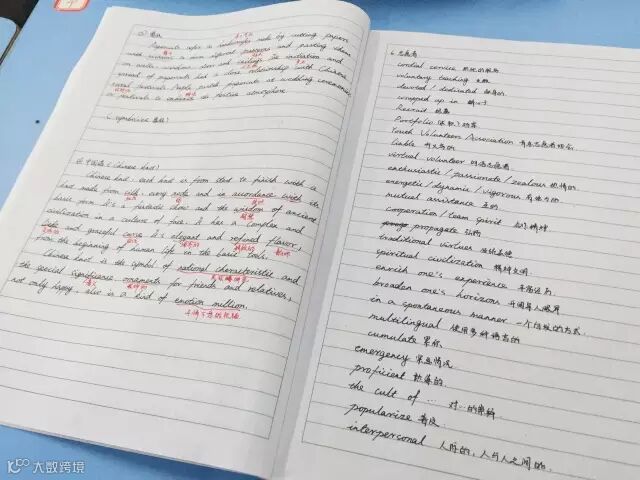 Papercuts refer to handicrafts made by cutting papers
with scissors to form different patterns and pasting them
on walls, windows, doors and ceilings. Its imitation and
spread of papercuts had a close relationship with Chinese
rural festivals. People pasted papercuts at wedding ceremonies
or festivals to enhance the festive atmosphere.
中国结 (Chinese knot)
Chinese knot, each knot is from start to finish with a
knot made from silk, every node and in accordance with its
basic form. It's a fantastic show and the wisdom of ancient
civilization in a culture of face. It has a complex and
and graceful curve. It's elegant and refined flavor,
from the beginning of human life on the basic tools.
Chinese knot is the symbol of national characteristic and
the special significance ornaments for friends and relatives,
not only happy, also is a kind of emotion million.
千情万感的祝福
6. 志愿者
cordial service 热忱的服务
voluntary teaching 支教
devoted / dedicated 献身的
wrapped up in 醉心于
Recruit 招募
Portfolio
Youth Volunteer Association 青年志愿者协会
liable 有义务的
virtual volunteer 网络志愿者
enthusiastic / passionate / zealous 热情的
energetic / dynamic / vigorous 有活力的
mutual assistance 互助
cooperation / team spirit 合作精神
propagate 弘扬
traditional virtues 传统美德
spiritual civilization 精神文明
enrich one's experience 丰富经历
broaden one's horizons 开阔某人眼界
in a spontaneous manner 一个自发的方式
multilingual 使用多种语言的
cumulate 累积
emergency 紧急情况
proficient 熟练的
the cult of ... 对...的崇拜
popularize 普及
interpersonal 人际的, 人与人之间的.
大数跨境